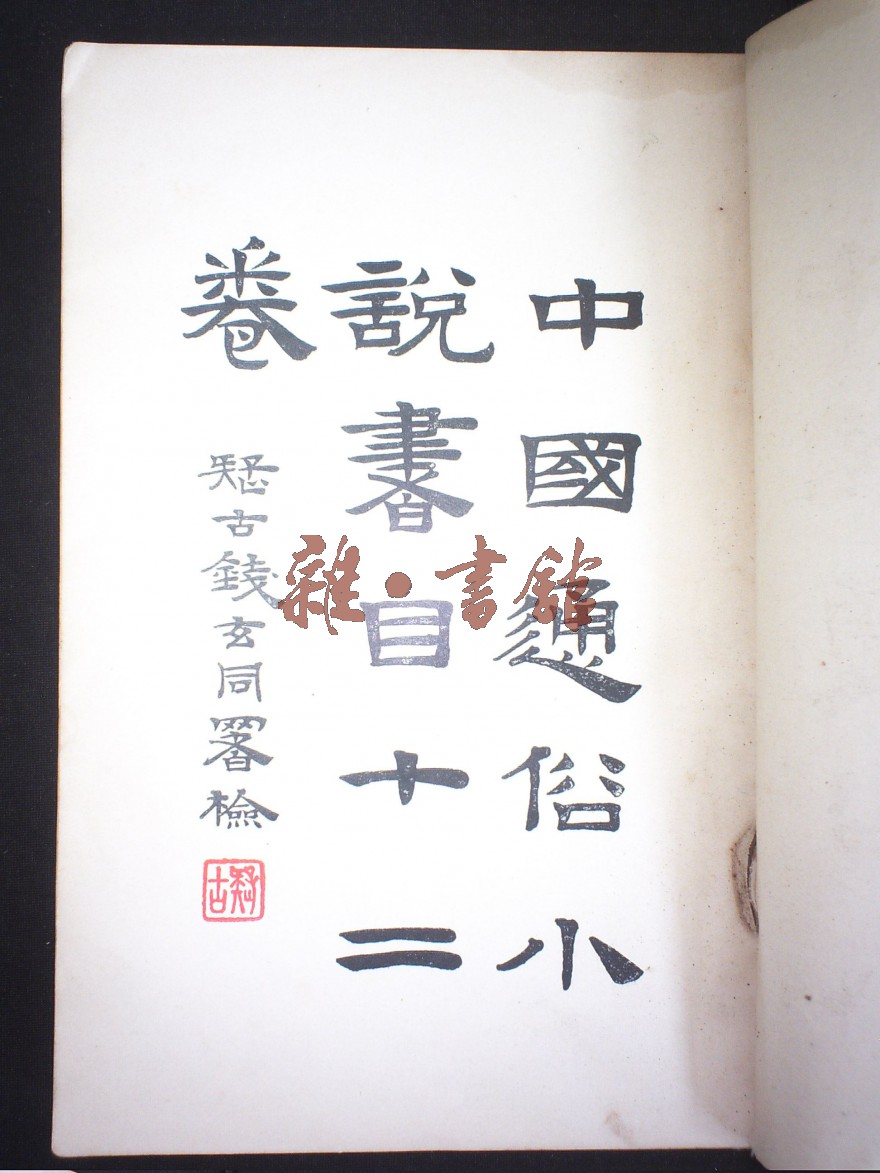 中國通俗小
說書目十二
卷
疑古錢玄同署檢
疑古
雜·書館